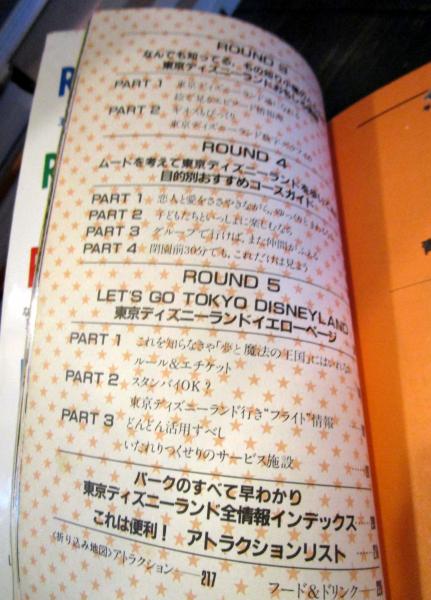 ROUND 3
なんでも知ってる、もの知り
東京ディズニーランドおもしろ
PART 1
PART 2
東京ディズニーランド
ROUND 4
ムードを考えて東京ディズニーランドを
目的別おすすめコースガイド
PART 1 恋人と愛をささやきながら、ゆっくり
PART 2 子どもたちといっしょに楽しむなら
PART 3 グループで行けば、また仲間がふえる
PART 4 閉園前30分でも、これだけは見よう
ROUND 5
LET'S GO TOKYO DISNEYLAND
東京ディズニーランドイエローページ
PART 1 これを知らなきゃ「夢と魔法の王国」には
ルール&エチケット
PART 2 スタンバイOK?
東京ディズニーランド行き"フライト"情報
PART 3 どんどん活用すべし
いたれりつくせりのサービス施設
パークのすべて早わかり
東京ディズニーランド全情報インデックス
これは便利! アトラクションリスト
〈折り込み地図〉アトラクション
217
フード&ドリンク